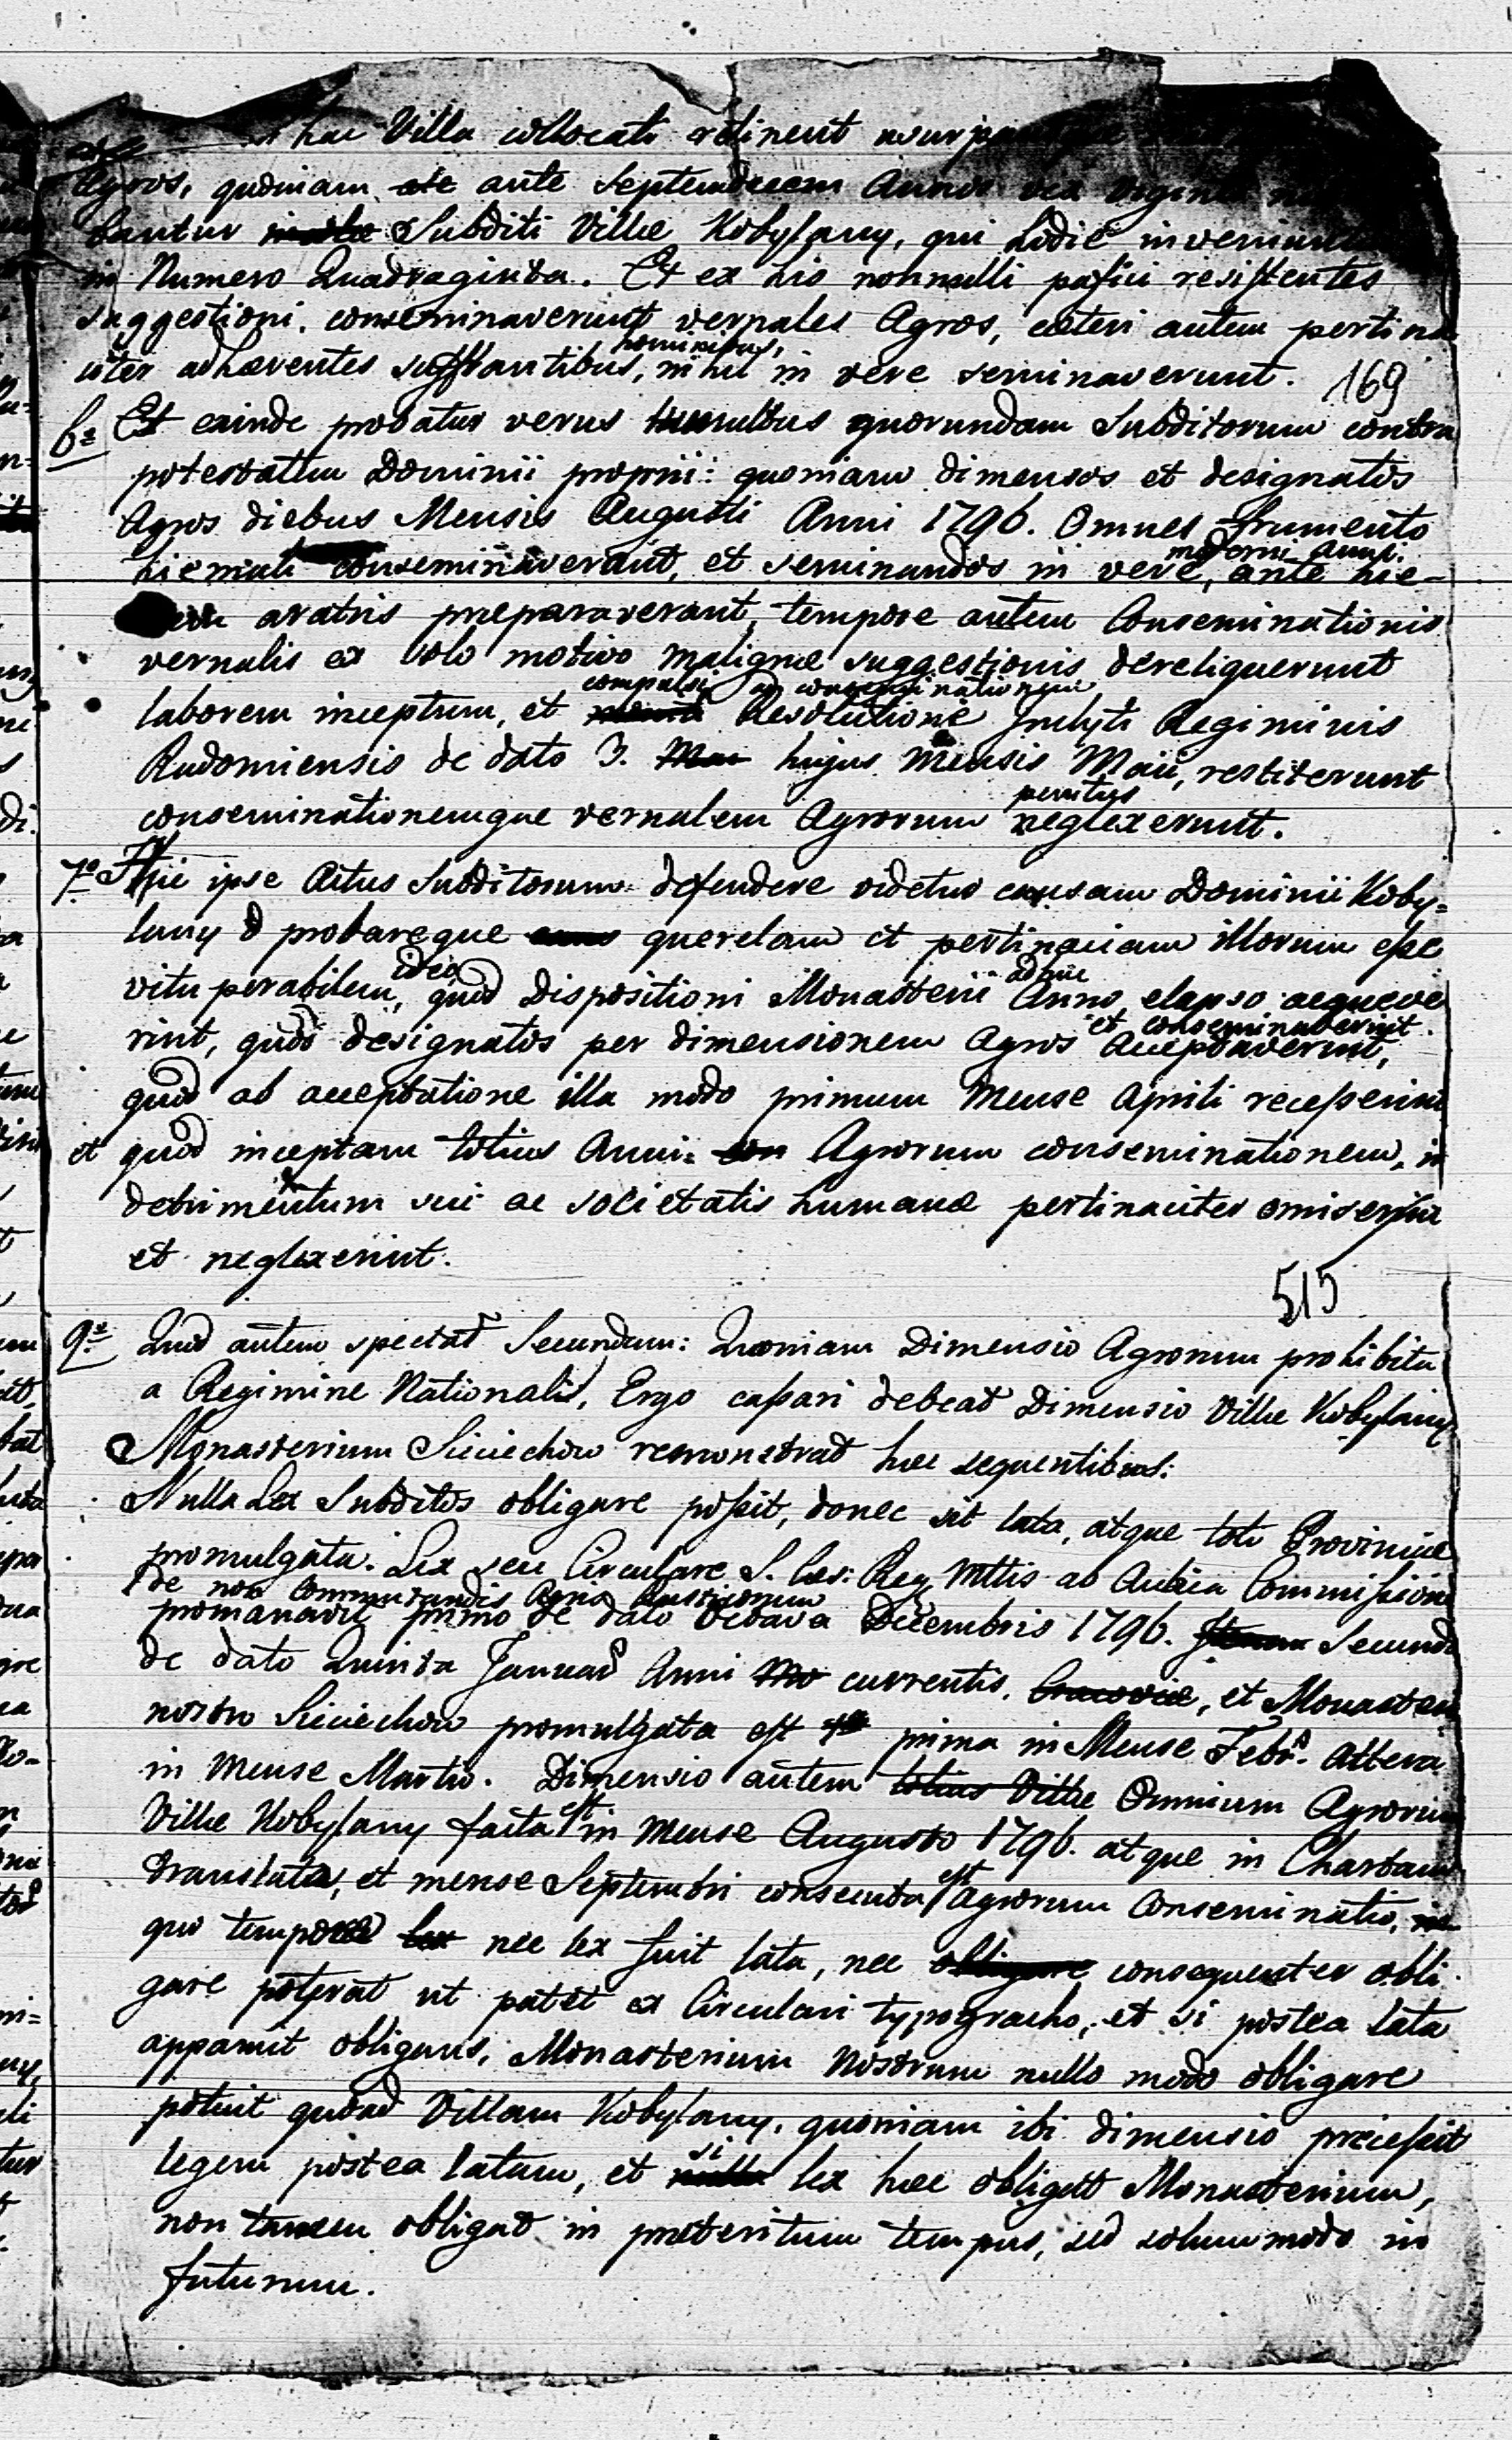 hac Villa collocati retinent
Agros, quoniam ante Septemdecem Annos vix Viginti
bantur Subditi Villæ Kobylany, qui hodie inveniuntur
in Numero Quadraginta. Et ex his nonnulli passivi resistentes
suggestioni, conseminaverunt vernales Agros, cæteri autem pertina
citer adhærentes sufflantibus, hominibus, nihil in vere seminaverunt.
169
6to Et exinde probatur verus tumultus quorundam Subditorum contra
potestatem Dominii proprii: quoniam dimensos et designatos
Agros diebus Mensis Augusti Anni 1796. Omnes frumento
hiemali conseminaverant, et seminandos in vere, moderni Anni. ante hie-
mem aratris præparaverant, tempore autem Conseminationis
vernalis ex solo motivo malignæ suggestionis dereliquerunt
laborem inceptum, et compulsi ad conseminationem Resolutione Inclyti Regiminis
Radomiensis de dato 3. hujus Mensis Maii, restiterunt
conseminationemque vernalem Agrorum penitus neglexerunt.
7o Hic ipse Actus Subditorum defendere videtur causam Dominii Koby=
lany probareque querelam et pertinaciam illorum esse
vituperabilem, ideo quod Dispositioni Monasterii adhuc Anno elapso acqueve
rint, quod designatos per dimensionem Agros acceptaverint, et conseminaverint.
quod ab acceptatione illa modo primum Mense Aprili recesserint
et quod inceptam totius Anni Agrorum conseminationem, in
detrimentum sui ac societatis humanæ pertinaciter omiserint
et neglexerint.
515
9o Quod autem spectat Secundum: Quoniam Dimensio Agrorum prohibita
a Regimine Nationali, Ergo cassari debeat Dimensio Villæ Kobylany
Monasterium Sieciechow remonstrat hæc sequentibus:
Nulla Lex Subditos obligare possit, donec sit lata, atque toti Provinciæ
promulgata. Lex seu Circulare S. Cæs: Reg Mttis ab Aulica Commissione
de non Commutandis Agris Rusticorum
promanavit primo de dato Octava Decembris 1796. Secundo
de dato Quinta Januar Anni currentis, et Monasterio
nostro Sieciechow promulgata est prima in Mense Febr. altera
in Mense Martio. Dimensio autem Omnium Agrorum
Villæ Kobylany facta est in Mense Augusto 1796. atque in Chartam
translata, et mense Septembri consecuta est Agrorum Conseminatio,
quo tempore nec lex fuit lata, nec consequenter obli
gare poterat ut patet ex Circulari typographo, et si postea lata
apparuit obligans, Monasterium Nostrum nullo modo obligare
potuit quoad Villam Kobylany, quoniam ibi dimensio præcessit
legem postea latam, et si lex hæc obliget Monasterium,
non tamen obligat in præteritum tempus, sed solummodo in
futurum.